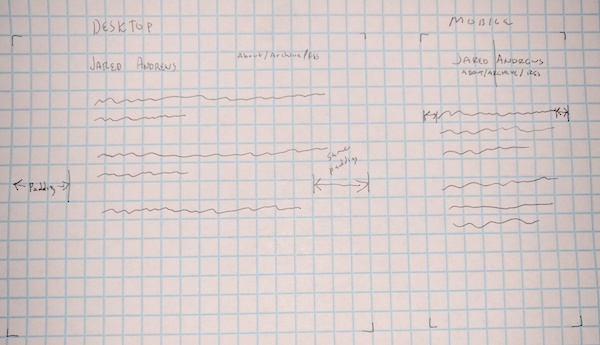 DESKTOP
JARED ANDREWS
About/Archive/RSS
Padding
Same
padding
MOBILE
JARED ANDREWS
ABOUT/ARCHIVE/RSS